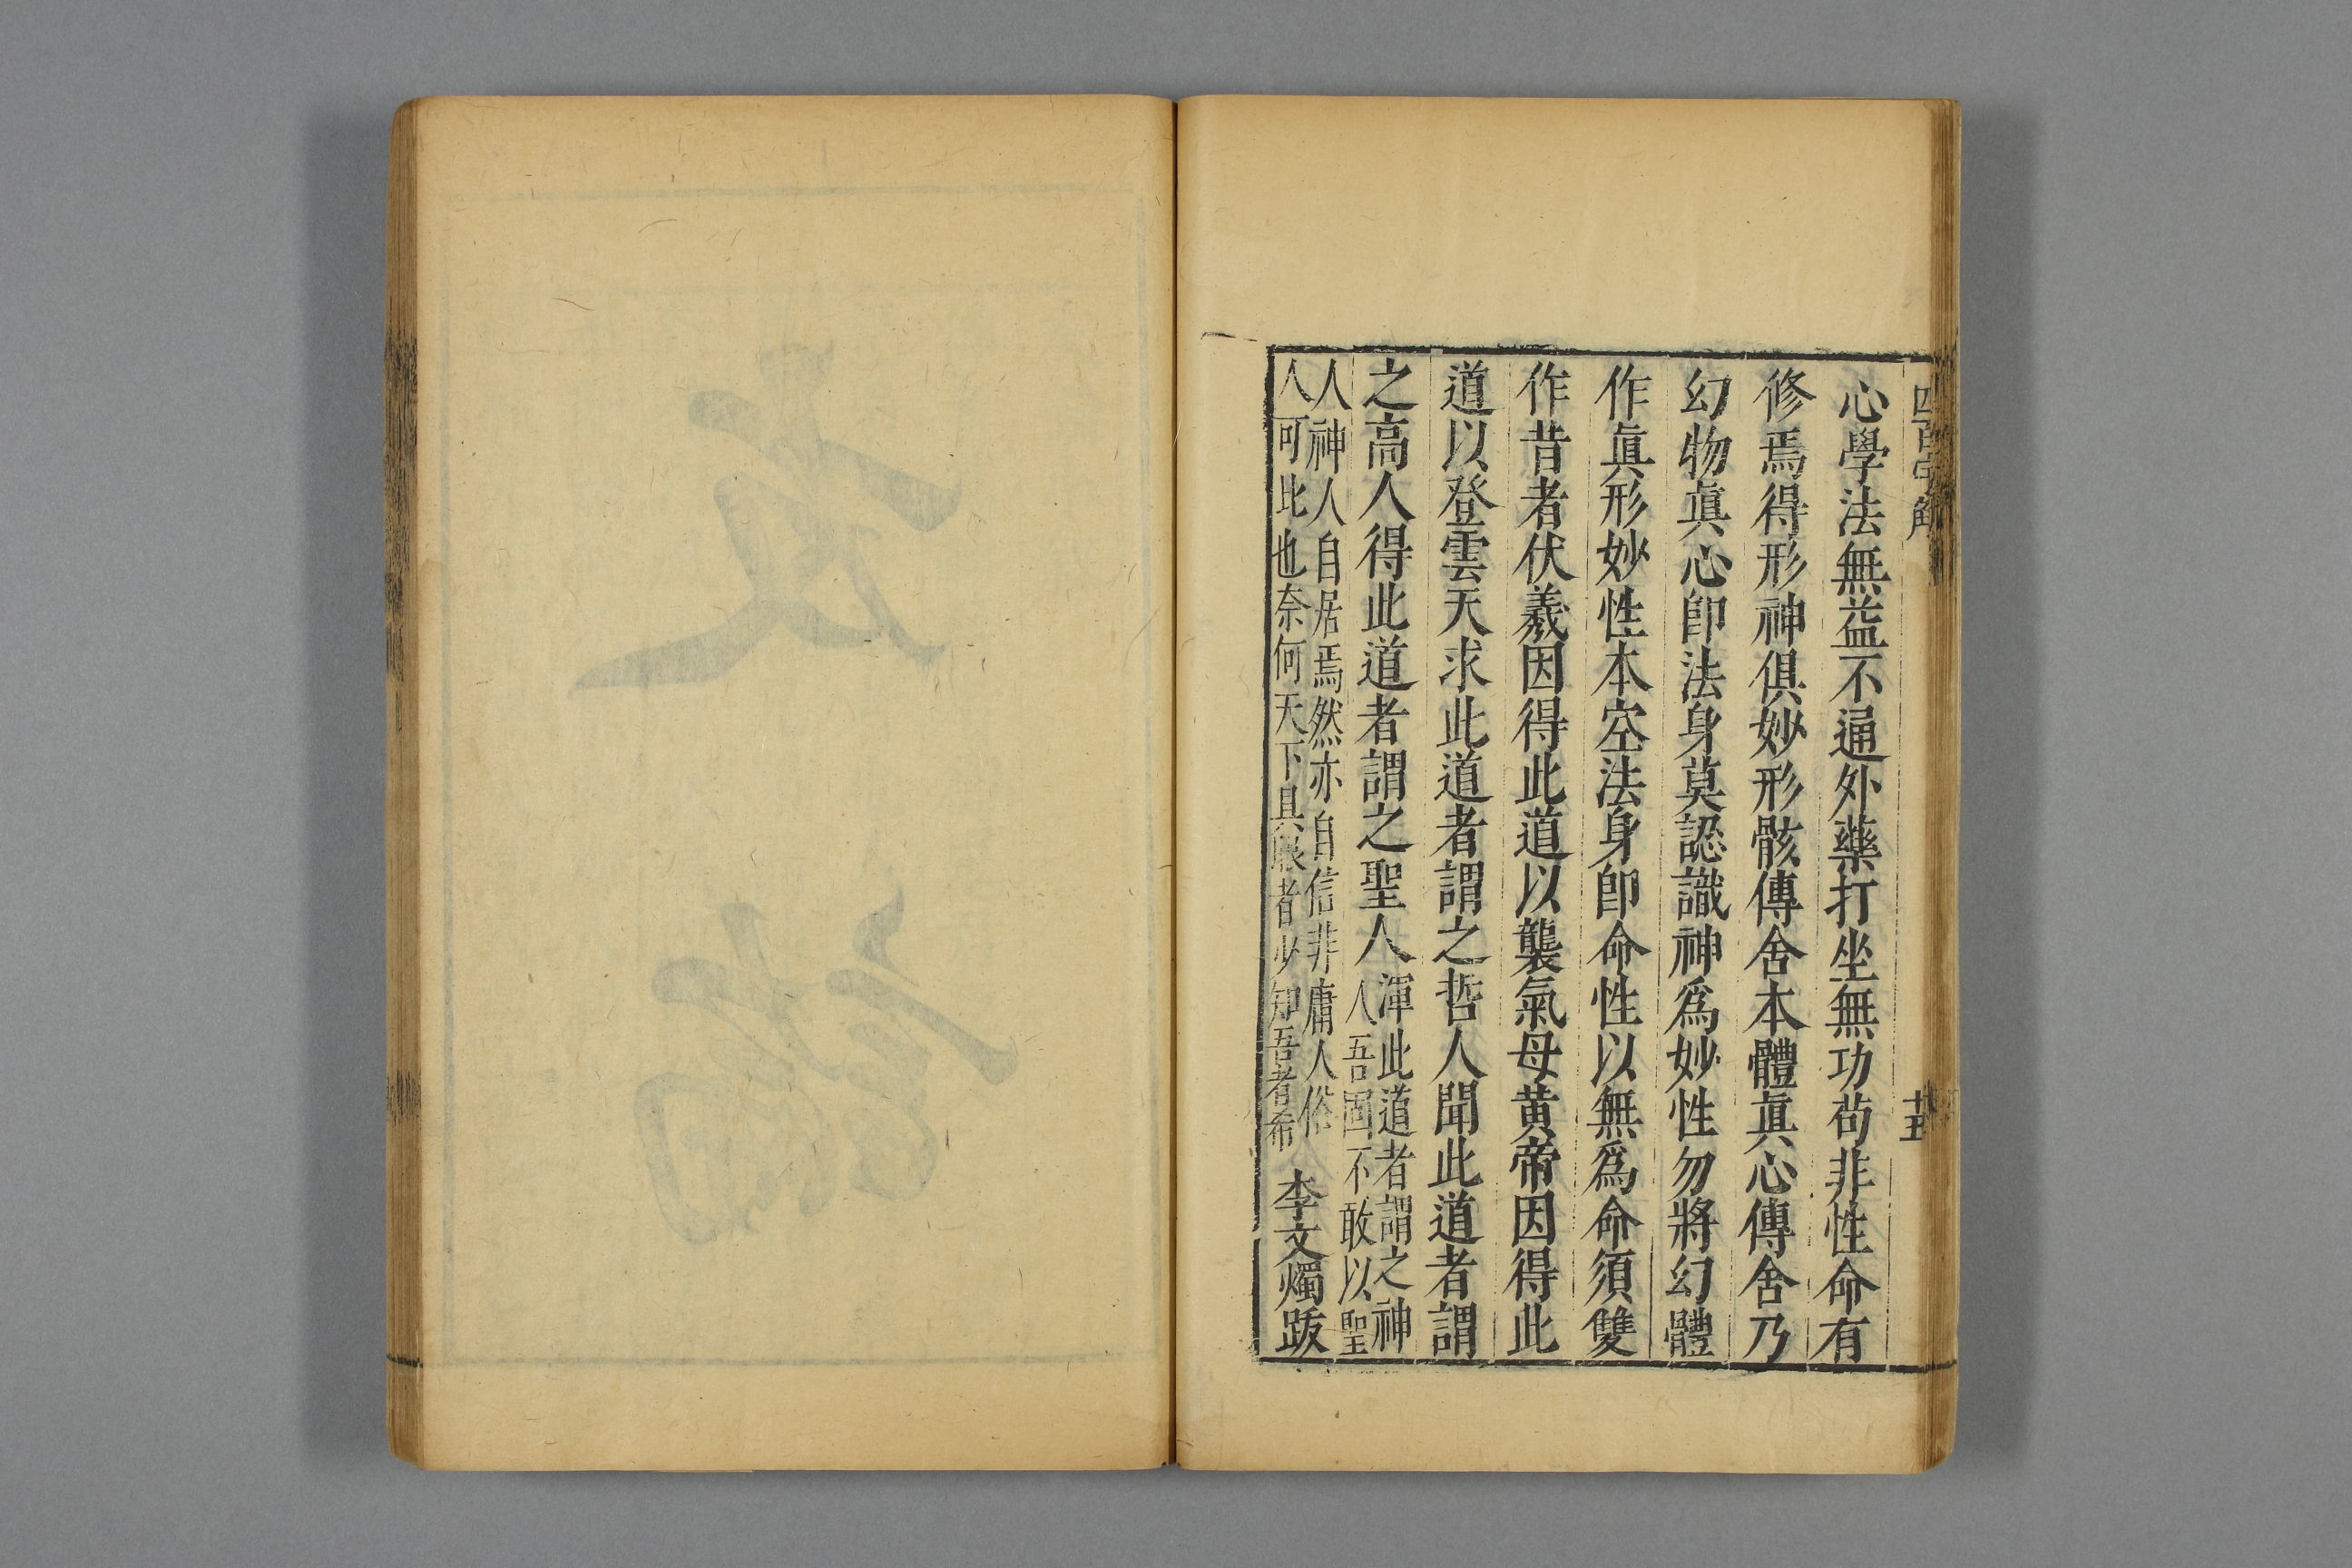 四百字解
十五
心學法無益不通外藥打坐無功茍非性命有
修焉得形神俱妙形骸傳舍本體眞心傳舍乃
幻物眞心卽法身莫認識神爲妙性勿將幻體
作眞形妙性本空法身卽命性以無爲命須雙
作昔者伏羲因得此道以襲氣母黃帝因得此
道以登雲天求此道者謂之哲人聞此道者謂
之高人得此道者謂之聖人
渾此道者謂之神
人吾固不敢以聖
人神人自居焉然亦自信非庸人俗
人可比也奈何天下具眼者少知吾者希
李文燭跋